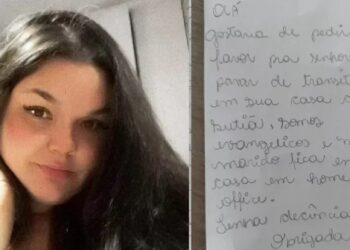 Olá
gostaria de pedir
favor pra senhora
parar de transitar
em sua casa
sutiã, somos
evangelicos e
marido fica em
casa em home
office.
Tenha decência
Obrigada